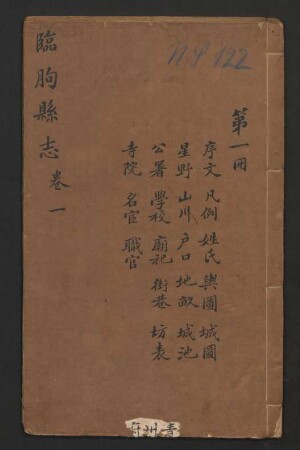 臨朐縣志 卷一
NP 122
第一冊
序文 凡例 姓氏 輿圖 城圖
星野 山川 戶口 地畝 城池
公署 學校 廟祀 街巷 坊表
寺院 名宦 職官
青州府